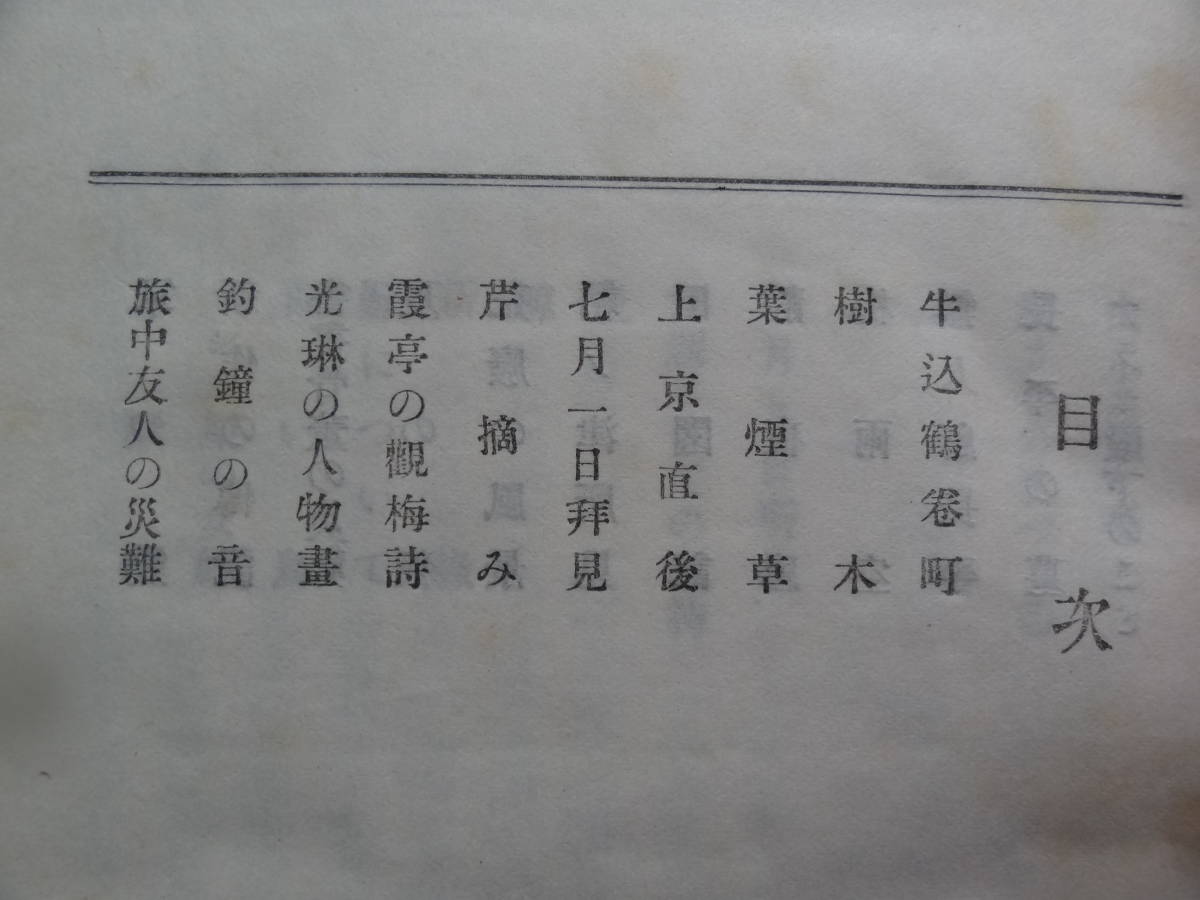 目次
牛込鶴卷町
樹木
葉煙草
上京直後
七月一日拜見
芹摘み
霞亭の觀梅詩
光琳の人物畫
釣鐘の音
旅中友人の災難